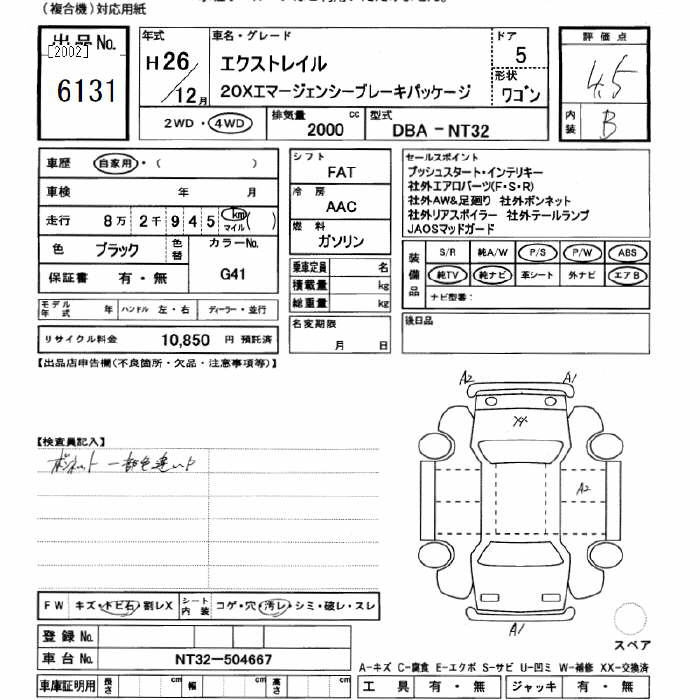 (複合機)対応用紙
出品No. [2002] 6131
年式 H26/12月
車名・グレード エクストレイル
20Xエマージェンシーブレーキパッケージ
ドア 5
形状 ワゴン
評価点 4.5
内装 B
2WD・4WD 排気量 2000 cc 型式 DBA-NT32
車歴 自家用・( )
車検 年 月
走行 8万2千945 km マイル ( )
色 ブラック 色替 カラーNo. G41
保証書 有・無
モデル年式 年 ハンドル 左・右 ディーラー・並行
リサイクル料金 10,850 円 預託済
シフト FAT
冷房 AAC
燃料 ガソリン
乗車定員 名
積載量 kg
総重量 kg
名変期限 月 日
セールスポイント
プッシュスタート・インテリキー
社外エアロパーツ(F・S・R)
社外AW&足廻り 社外ボンネット
社外リアスポイラー 社外テールランプ
JAOSマッドガード
装備品 S/R 純A/W P/S P/W ABS
純TV 純ナビ 革シート 外ナビ エアB
ナビ型番:
後日品
【出品店申告欄(不良箇所・欠品・注意事項等)】
【検査員記入】
ボンネット 一部色違い
A2 A1
A2
A1
スペア
FW キズ・トビ石・割レX シート内装 コゲ・穴・汚レ・シミ・破レ・スレ
登録No.
車台No. NT32-504667
A-キズ C-腐食 E-エクボ S-サビ U-凹ミ W-補修 XX-交換済
車庫証明用 長さ cm 幅 cm 高さ cm 工具 有・無 ジャッキ 有・無